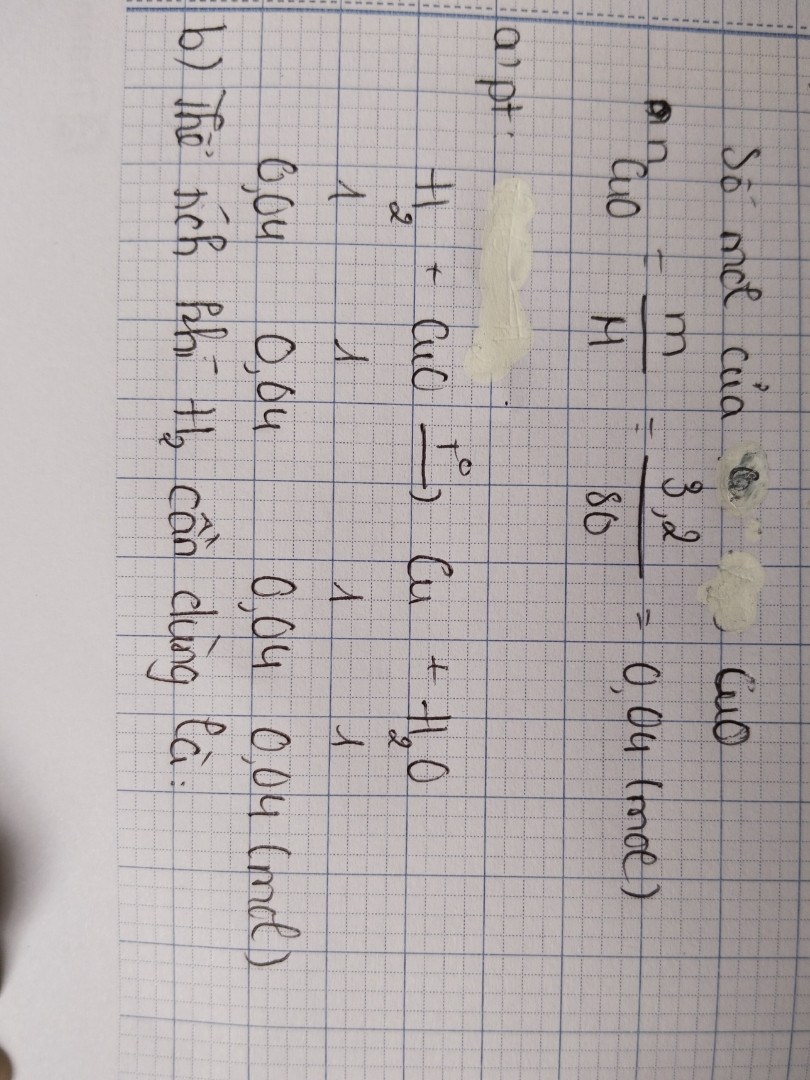 Số mol của CuO
n CuO = m/M = 3,2/80 = 0,04 (mol)
a) pt:
H2 + CuO t° → Cu + H2O
1 1 1 1
0,04 0,04 0,04 0,04 (mol)
b) Thể tích khí H2 cần dùng là: